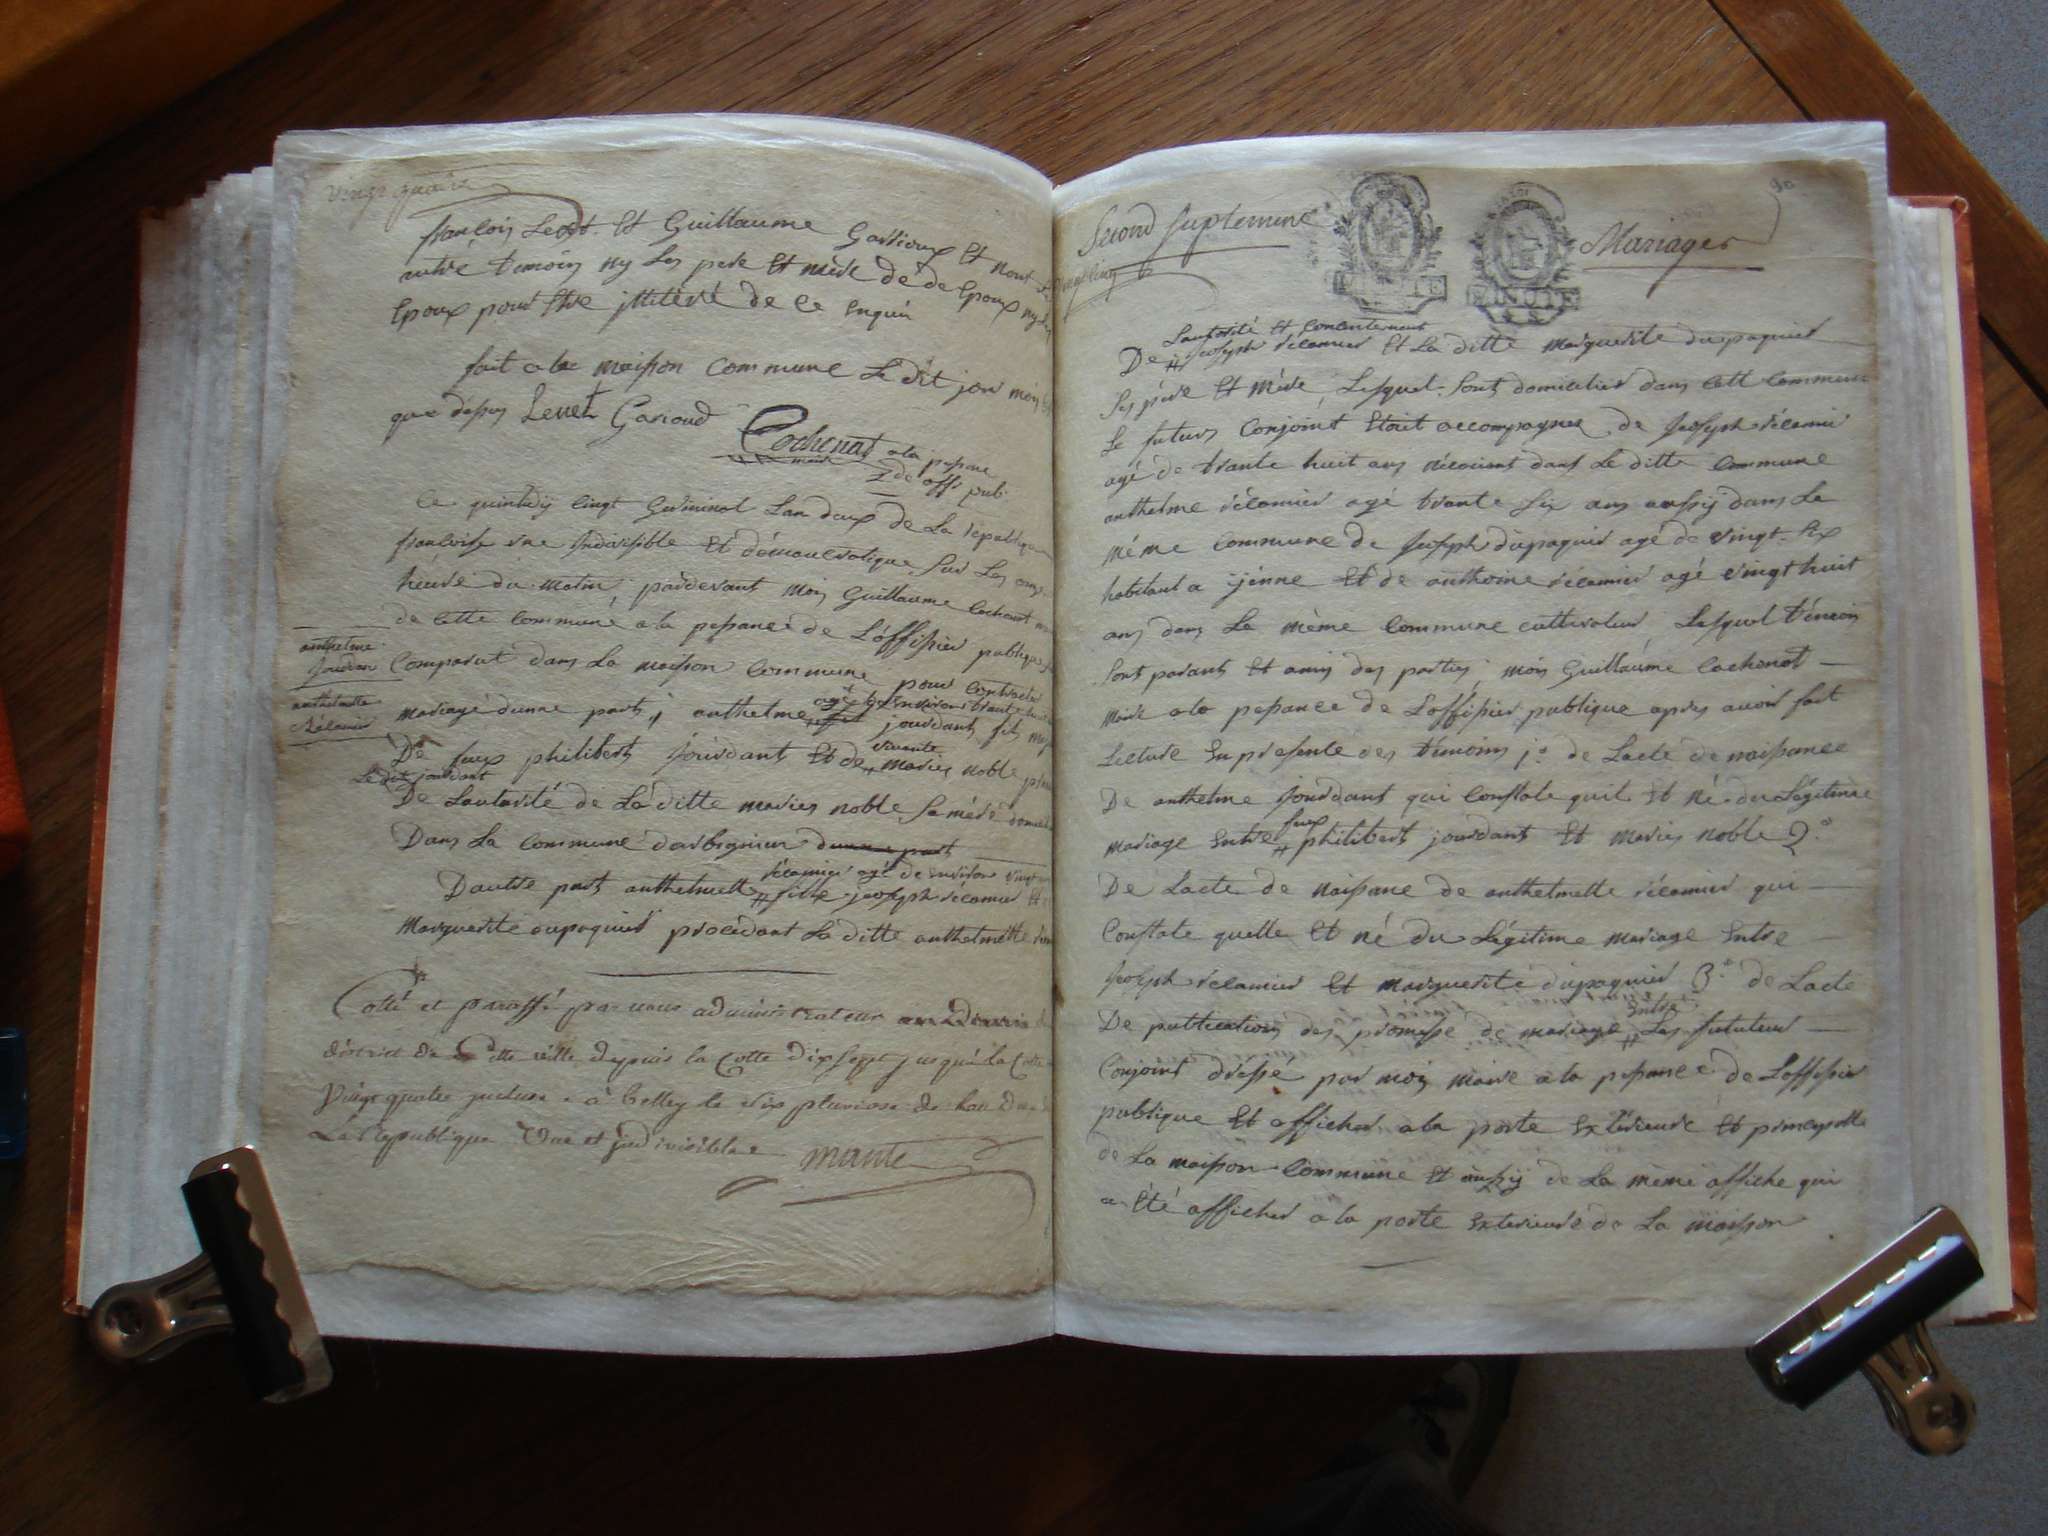 vingt quatre
françois Lesst Et Guillaume Gassioux Et nont
autre temoin ny Les pere Et mere de de Epoux ny
Epoux pour Etre illiteré de ce Enquir
fait a la maison Commune Le dit jour mois
que dessus Leuet Gariaud
Cochenat a la pessanc
maire
de offi pub.
Ce quintidy vingt Germinal Lan deux de La republique
francoise une Indivisible Et démocratique Sur Les onze
heure du matin, pardevant Moy Guillaume Cochonat
de Cette commune a la pessance de Loffissier publique
anthelme
Jourdan
Comparut dans La maison Commune pour Contracter
anthelmette
Récamier
agé de Environs trante
mariage dunne part, anthelme jourdant fils
De feux philibert Jourdant Et de vivante maries noble
Le dit jourdant
De Lautorité de La ditte maries noble Sa mere
Dans La Commune darbignieu dunne part
récamier agé de Environ vingt
Dautre part anthelmette fille joseph récamier Et
Marguerite dupaquier procédant La ditte anthelmette
Cotté et paraffé par nous administrateur du
district de Cette ville depuis la Cotte dixsept jusqu'à la Cotte
Vingt quatre incluse. à belley le dix pluviose de lan deux
La République une et indivisible
mante
Second Suplement
Vingt cinq
90
Mariages
Lautorité Et Concentement
De joseph récamier Et La ditte marguerite dupaquier
Ses pére Et mére, Lesquel Sont domicilier dans Cett Commune
Le futurs Conjoint Etait accompagner de Joseph récamier
agé de trante huit ans résidant dans Le ditte Commune
anthelme récamier agé trante Six ans aussy dans La
méme commune de Joseph dupaquier agé de vingt Six
habitant a yénne Et de anthoine récamier agé vingt huit
ans dans La méme Commune cultivateur Lesquel témoin
Sont parant Et amis des parties, moy Guillaume Cochonat
maire a la pessance de Loffissier publique apres avoir fait
Lecture En presente des témoins 1o de Lacte de naissance
De anthelme Jourdant qui Constate quil Et né du Légitime
mariage Entre feux philibert jourdant Et maries noble 2o
De Lacte de naissance de anthelmette récamier qui
Constate quelle Et né du Légitime mariage Entre
Joseph récamier Et marguerite dupaquier 3o de Lacte
De publication des promesse de mariage Entre Les futuleur
Conjoint dressé par moy maire a la pessance de Loffissier
publique Et afficher a la porte Extérieure Et principalle
de La maison Commune Et aussy de La méme affiche qui
a Eté afficher a la porte Exterieure de La maison